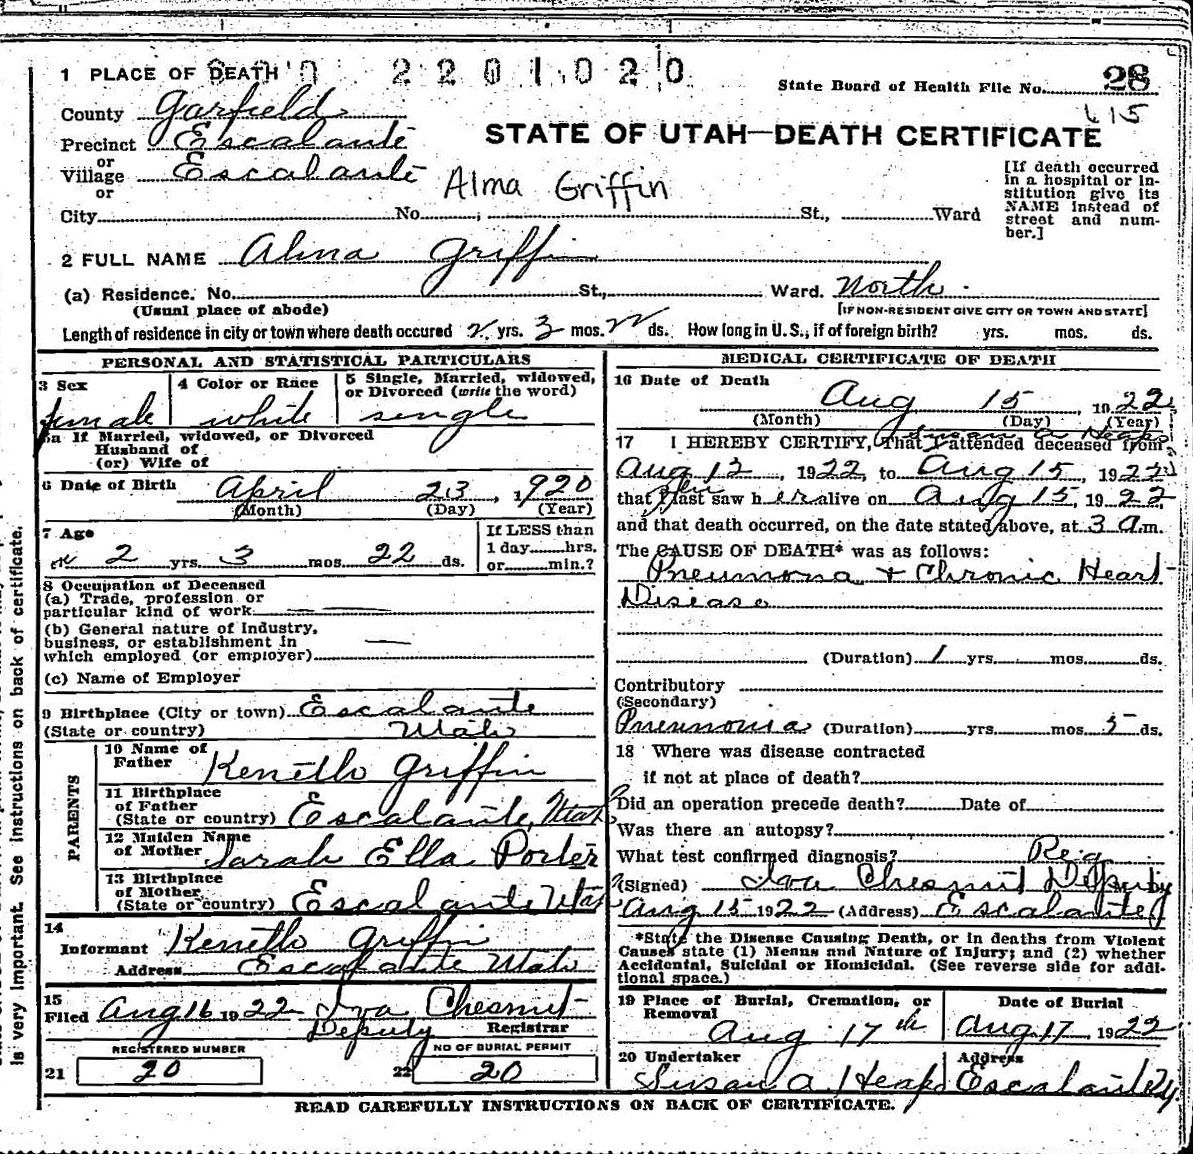 1 PLACE OF DEATH 2201020
State Board of Health File No. 28
County Garfield
615
Precinct Escalante
STATE OF UTAH—DEATH CERTIFICATE
or
Village Escalante
or
Alma Griffin
[If death occurred
in a hospital or in-
stitution give its
NAME instead of
street and num-
ber.]
City No. ; St., Ward
2 FULL NAME Alma Griffin
(a) Residence. No. St., Ward. North
(Usual place of abode)
[IF NON-RESIDENT GIVE CITY OR TOWN AND STATE]
Length of residence in city or town where death occured 2 yrs. 3 mos. 22 ds. How long in U.S., if of foreign birth? yrs. mos. ds.
PERSONAL AND STATISTICAL PARTICULARS
3 Sex
female
4 Color or Race
white
5 Single, Married, widowed,
or Divorced (write the word)
single
5a If Married, widowed, or Divorced
Husband of
(or) Wife of
6 Date of Birth April 23, 1920
(Month) (Day) (Year)
7 Age
2 yrs. 3 mos. 22 ds.
If LESS than
1 day hrs.
or min.?
8 Occupation of Deceased
(a) Trade, profession or
particular kind of work — —
(b) General nature of industry,
business, or establishment in
which employed (or employer) —
(c) Name of Employer
9 Birthplace (City or town) Escalante
(State or country) Utah
PARENTS
10 Name of
Father Kenetth Griffin
11 Birthplace
of Father
(State or country) Escalante, Utah
12 Maiden Name
of Mother Sarah Ella Porter
13 Birthplace
of Mother
(State or country) Escalante Utah
14
Informant Kenetth Griffin
Address Escalante Utah
15
Filed Aug 16 1922 Iva Chesnut
Deputy Registrar
REGISTERED NUMBER
21 20
NO OF BURIAL PERMIT
22 20
MEDICAL CERTIFICATE OF DEATH
16 Date of Death
Aug 15, 1922
(Month) (Day) (Year)
Susan A Heaps
17 I HEREBY CERTIFY, That I attended deceased from
Aug 12, 1922 to Aug 15, 1922
that I last saw her alive on Aug 15, 1922,
and that death occurred, on the date stated above, at 3 a.m.
The CAUSE OF DEATH* was as follows:
Pneumona + Chronic Heart
Disease
(Duration) 1 yrs. mos. ds.
Contributory
(Secondary)
Pneunomia (Duration) yrs. mos. 5 ds.
18 Where was disease contracted
if not at place of death?
Did an operation precede death? Date of
Was there an autopsy?
What test confirmed diagnosis? Reg
(Signed) Iva Chesnut Deputy
Aug 15 1922 (Address) Escalante
*State the Disease Causing Death, or in deaths from Violent
Causes state (1) Menus and Nature of Injury; and (2) whether
Accidental, Suicidal or Homicidal. (See reverse side for addi-
tional space.)
19 Place of Burial, Cremation, or
Removal
Aug 17th
Date of Burial
Aug 17, 1922
20 Undertaker
Susan A Heaps
Address
Escalante Ut.
READ CAREFULLY INSTRUCTIONS ON BACK OF CERTIFICATE.
is very important. See instructions on back of certificate.